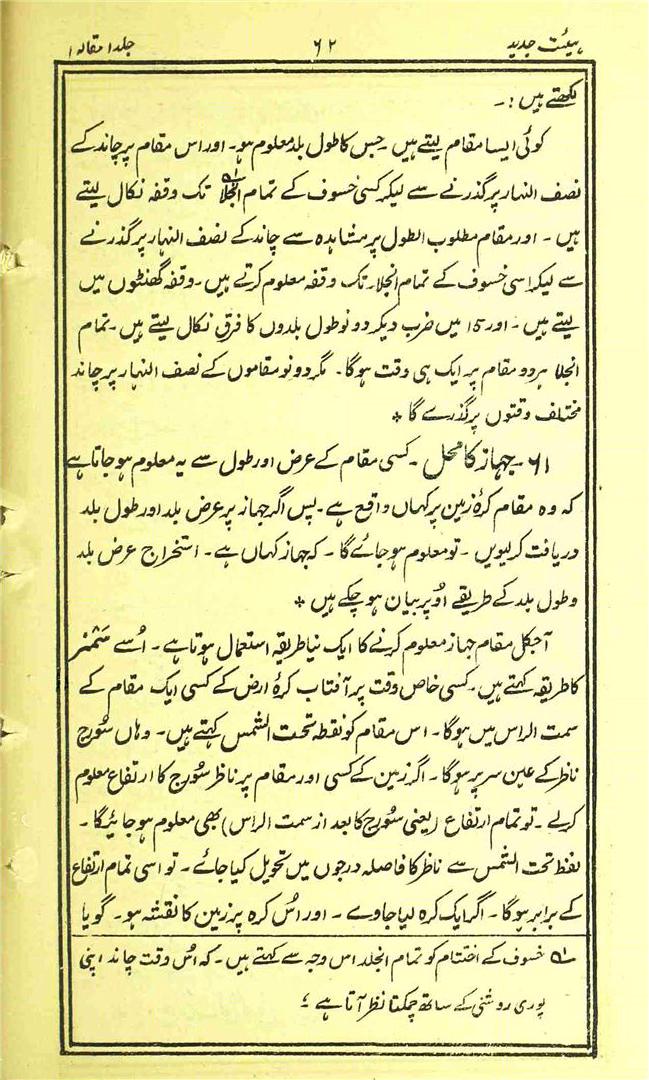 ہیئت جدید ۶۲ جلد ۱ مقالہ ۱
لکھتے ہیں :۔
کوئی ایسا مقام لیتے ہیں ۔ جس کا طول بلد معلوم ہو۔ اور اس مقام پر چاند کے
نصف النہار پر گذرنے سے لیکر کسی خسوف کے تمام انجلا۱ؔ تک وقفہ نکال لیتے
ہیں ۔ اور مقام مطلوب الطول پر مشاہدہ سے چاند کے نصف النہار پر گذرنے
سے لیکر اسی خسوف کے تمام انجلا۔ تک وقفہ معلوم کرتے ہیں ۔ وقفہ گھنٹوں میں
لیتے ہیں ۔ اور ۱۵ میں ضرب دیکر دونو طول بلدوں کا فرق نکال لیتے ہیں ۔ تمام
انجلا ہر دو مقام پر ایک ہی وقت ہوگا۔ مگر دونو مقاموں کے نصف النہار پر چاند
مختلف وقتوں پر گذرے گا *
۶۱ ۔ جہاز کا محل ۔ کسی مقام کے عرض اور طول سے یہ معلوم ہو جاتا ہے
کہ وہ مقام کرۂ زمین پر کہاں واقع ہے ۔ پس اگر جہاز پر عرض بلد اور طول بلد
دریافت کر لیویں ۔ تو معلوم ہو جائے گا ۔ کہ جہاز کہاں ہے ۔ استخراج عرض بلد
و طول بلد کے طریقے اُوپر بیان ہو چکے ہیں *
آجکل مقام جہاز معلوم کرنے کا ایک نیا طریقہ استعمال ہوتا ہے ۔ اُسے سَمْنَر
کا طریقہ کہتے ہیں ۔ کسی خاص وقت پر آفتاب کرۂ ارض کے کسی ایک مقام کے
سمت الراس میں ہوگا ۔ اس مقام کو نقطہ تحت الشمس کہتے ہیں ۔ وہاں سُورج
ناظر کے عین سر پر ہوگا ۔ اگر زمین کے کسی اور مقام پر ناظر سُورج کا ارتفاع معلوم
کرلے ۔ تو تمام ارتفاع (یعنی سُورج کا بعد از سمت الراس) بھی معلوم ہو جائیگا ۔
نقطہ تحت الشمس سے ناظر کا فاصلہ درجوں میں تحویل کیا جائے ۔ تو اسی تمام ارتفاع
کے برابر ہوگا ۔ اگر ایک کرہ لیا جاوے ۔ اور اُس کرہ پر زمین کا نقشہ ہو۔ گویا
۱ؔ خسوف کے اختتام کو تمام انجلا اس وجہ سے کہتے ہیں ۔ کہ اُس وقت چاند اپنی
پوری روشنی کے ساتھ چمکتا نظر آتا ہے ؛